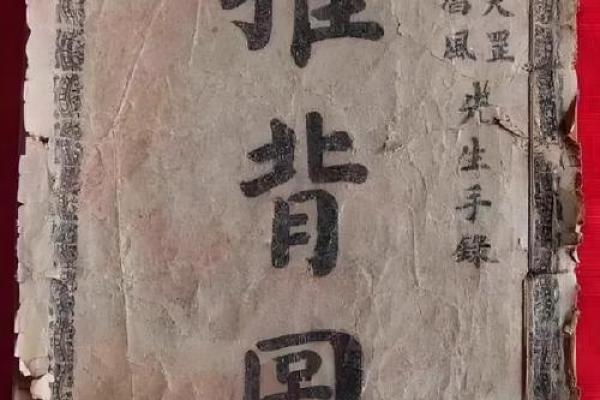 天罡
淳風
先生手錄
推背圖